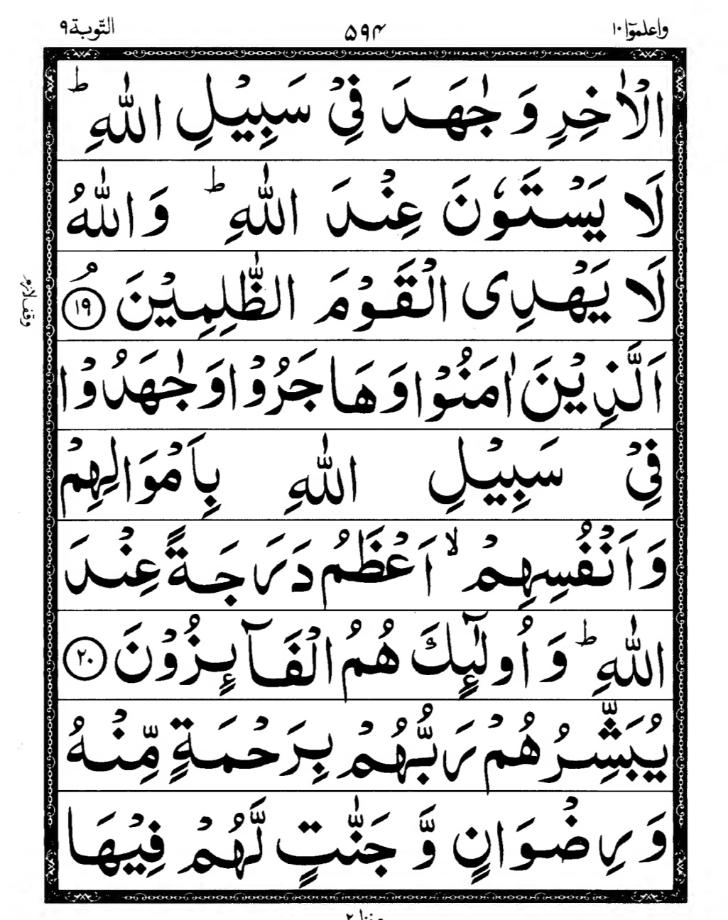 واعلموا۱۰ ۵۹۴ التّوبة۹
الْاٰخِرِ وَ جٰهَدَ فِیْ سَبِیْلِ اللّٰهِ ؕ
لَا یَسْتَوٗنَ عِنْدَ اللّٰهِ ؕ وَ اللّٰهُ
لَا یَهْدِی الْقَوْمَ الظّٰلِمِیْنَ ۘ ﴿۱۹﴾
وقف لازم
اَلَّذِیْنَ اٰمَنُوْا وَ هَاجَرُوْا وَ جٰهَدُوْا
فِیْ سَبِیْلِ اللّٰهِ بِاَمْوَالِهِمْ
وَ اَنْفُسِهِمْ ۙ اَعْظَمُ دَرَجَةً عِنْدَ
اللّٰهِ ؕ وَ اُولٰٓىِٕكَ هُمُ الْفَآىِٕزُوْنَ ﴿۲۰﴾
یُبَشِّرُهُمْ رَبُّهُمْ بِرَحْمَةٍ مِّنْهُ
وَ رِضْوَانٍ وَّ جَنّٰتٍ لَّهُمْ فِیْهَا